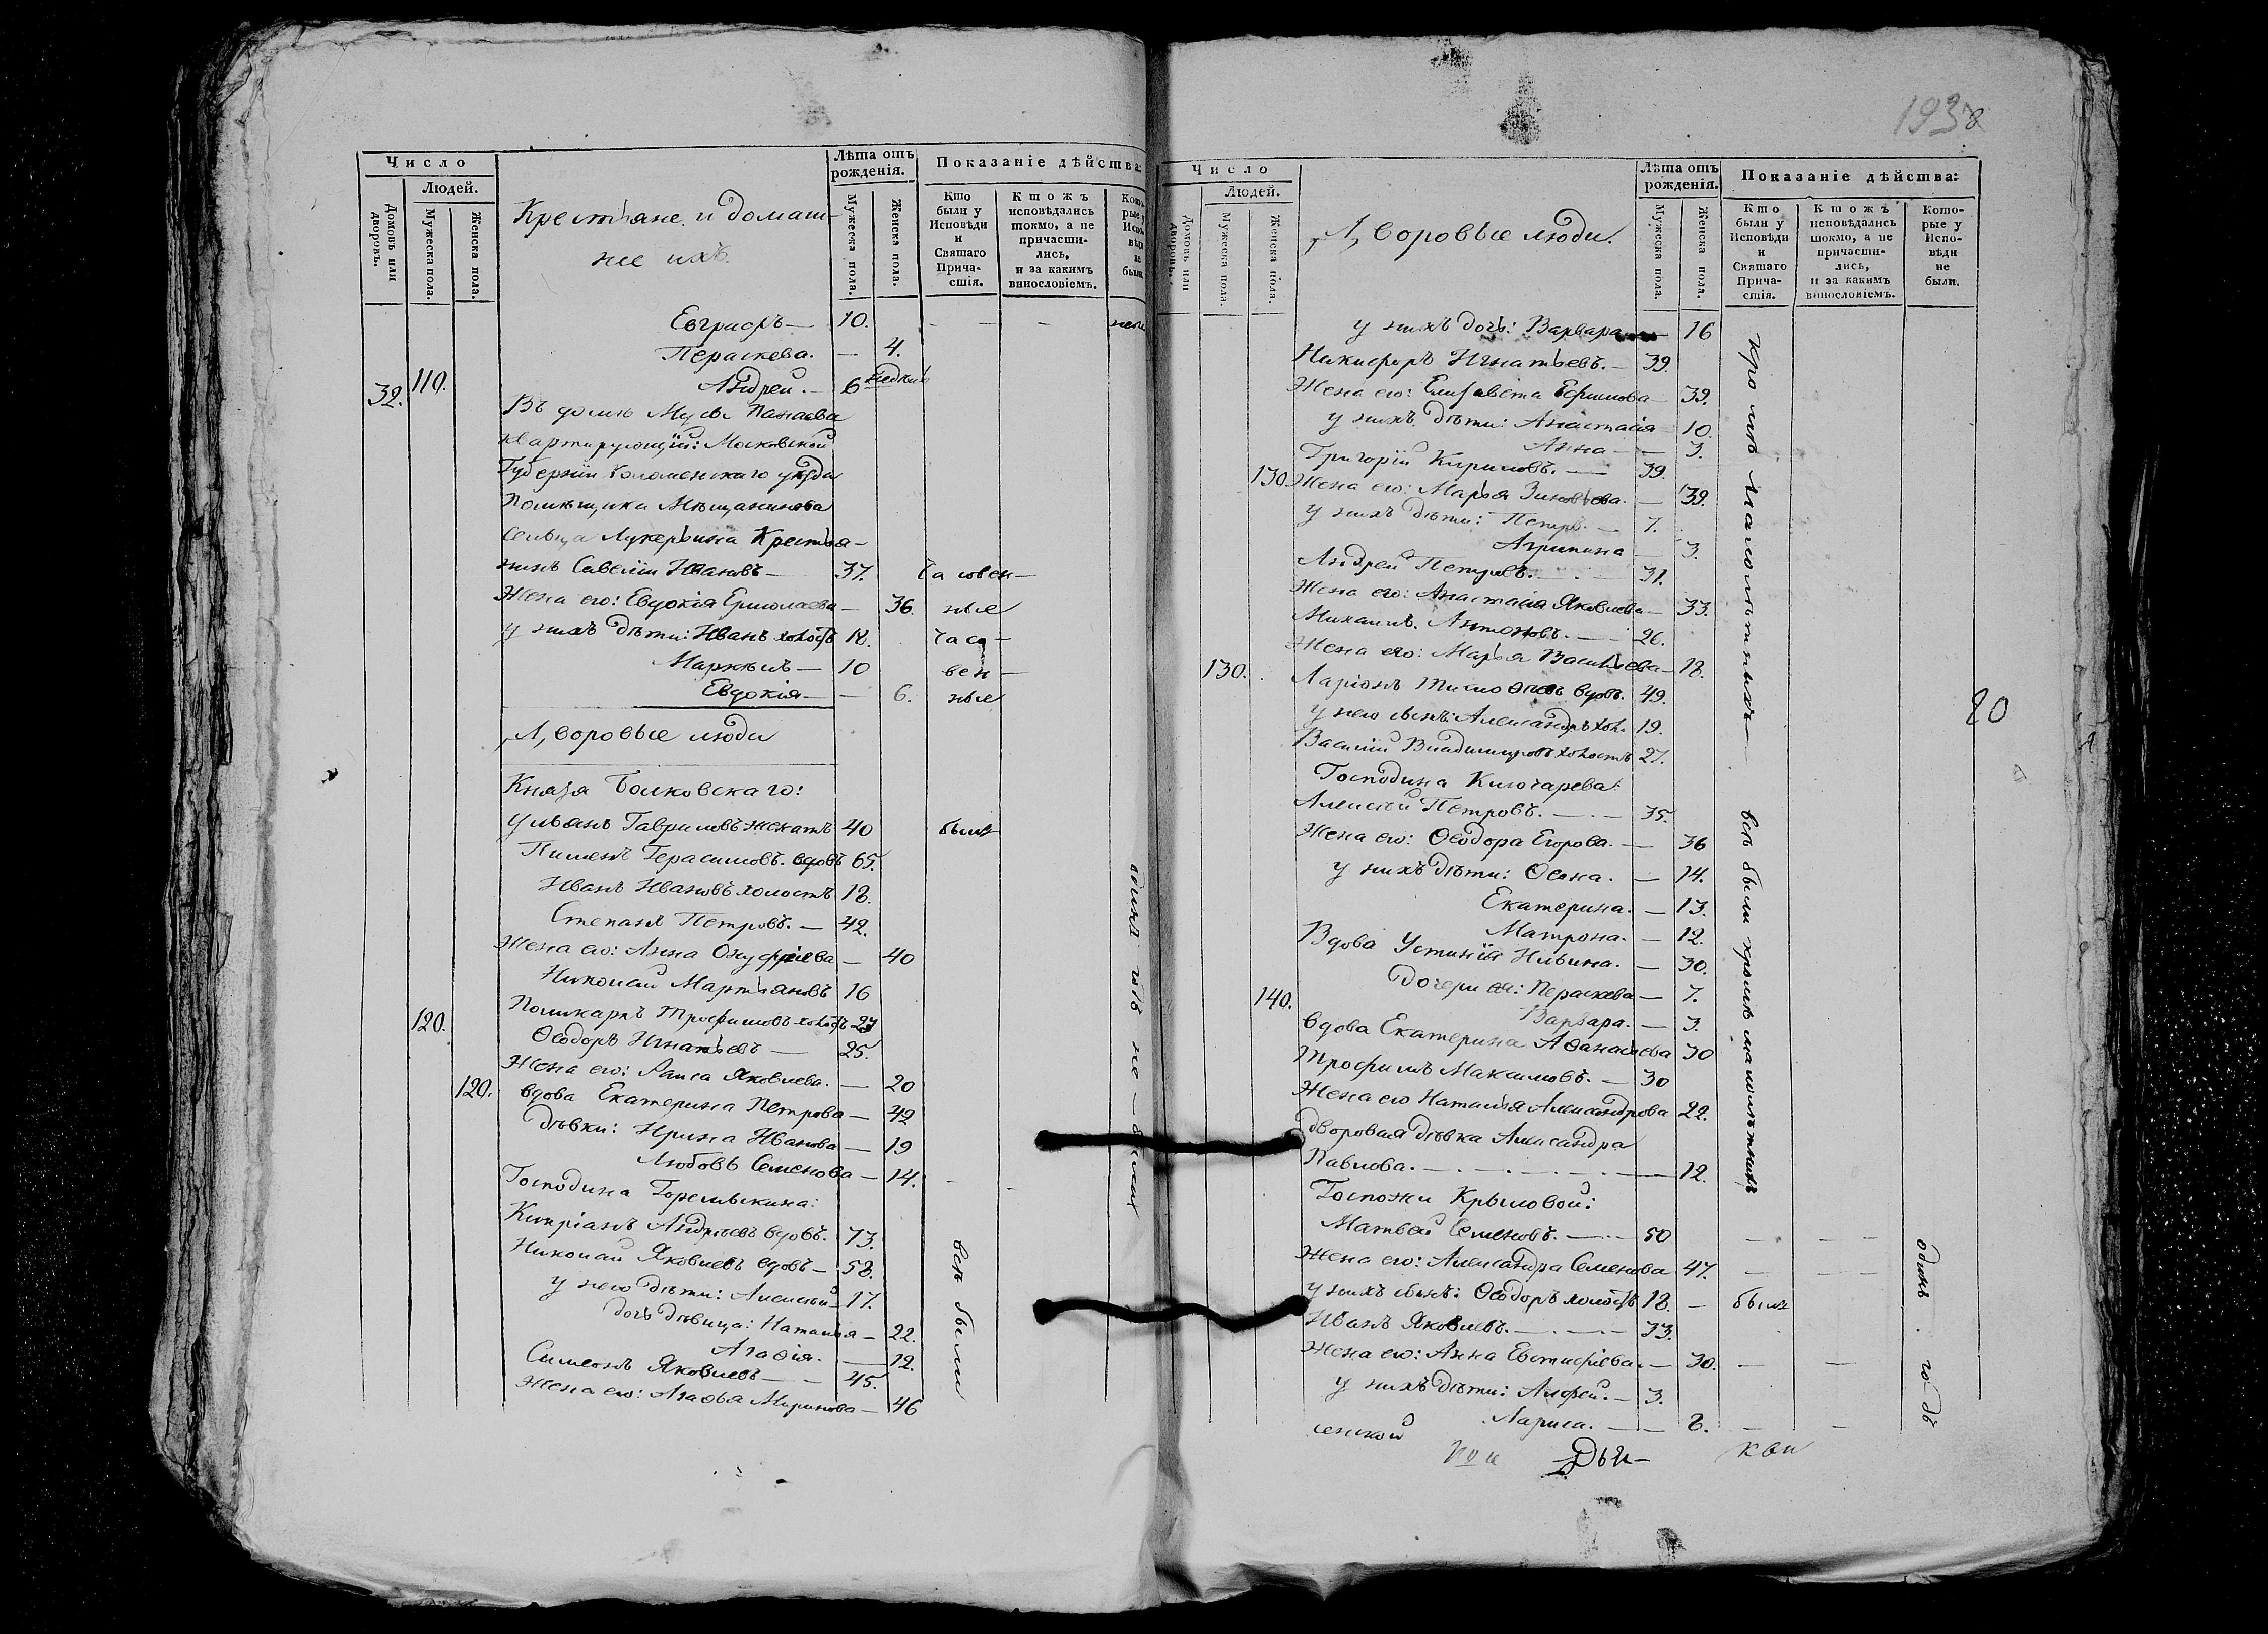 193
Число
Людей.
Домовъ или дворовъ.
Мужеска пола.
Женска пола.
Крестьяне и домаш-
ніе ихъ.
Лѣта отъ рожденія.
Мужеска пола.
Женска пола.
Показаніе дѣйства:
Кто были у Исповѣди и Святаго Прича-стія.
Ктожъ исповѣдались токмо, а не причасти-лись, и за какимъ винословіемъ.
Которые у Исповѣди не были.
Евграфъ — 10.
Параскева. — 4.
110. Андрей. — 6 недѣль
32. Въ домѣ Панаева
квартирующій: Московской
Губерніи Коломенскаго уѣзда
Помѣщика Мѣщанинова
сельца Лукерьина Крестья-
нинъ Савелій Ивановъ — 37. Часовен-
Жена его: Евдокія Ермолаева — 36. ные
у нихъ дѣти: Иванъ холостъ 18. часо-
10 вен-
Евдокія — 6. ные
Дворовые люди
Князя Волковскаго:
Ульянъ Гавриловъ женатъ 40 былъ
Пименъ Герасимовъ. вдовъ 65.
Иванъ Ивановъ холостъ 18.
Степанъ Петровъ. — 42.
Жена его: Анна Онуфріева — 40
Николай Мартьяновъ 16
120. Поликарпъ Трофимовъ холостъ 23
Ѳеодоръ Игнатьевъ — 25.
Жена его: Раиса Яковлева. — 20
120. вдова Екатерина Петрова — 42
дѣвки: Ирина Иванова — 19
Любовь Семенова — 14.
Господина Горемыкина:
Кипріанъ Андреевъ вдовъ. 73.
Николай Яковлевъ вдовъ — 58.
у него дѣти: Алексѣй — 17.
дочь дѣвица: Наталья — 22.
Агаѳія. — 12.
Симеонъ Яковлевъ — 45.
Жена его: Агаѳья Миронова — 46
всѣ были
Число
Людей.
Домовъ или дворовъ.
Мужеска пола.
Женска пола.
Дворовые люди.
Лѣта отъ рожденія.
Мужеска пола.
Женска пола.
Показаніе дѣйства:
Кто были у Исповѣди и Святаго Прича-стія.
Ктожъ исповѣдались токмо, а не причасти-лись, и за какимъ винословіемъ.
Кото-рые у Испо-вѣди не были.
у нихъ дочь: Варвара — 16
Никифоръ Игнатьевъ. — 39.
Жена его: Елисавета Ефимова — 39.
у нихъ дѣти: Анастасія 10.
Анна — 3.
Григорій Кириловъ. — 39.
130. Жена его: Марья Зиновьева. — 39.
у нихъ дѣти: Петръ. — 7.
Агрипина — 3.
Андрей Петровъ. — 31.
Жена его: Анастасія Яковлева — 33.
Михаилъ Антоновъ. — 26.
Жена его: Марья Васильева — 18.
130. Ларіонъ Тимоѳеевъ вдовъ. 49.
у него сынъ: Александръ хол. 19.
Василій Владимировъ холостъ 27.
Господина Ключарева:
Алексѣй Петровъ. — 35.
Жена его: Ѳеодора Егорова. — 36
у нихъ дѣти: Ѳекла. — 14.
Екатерина. — 13.
Матрона. — 12.
Вдова Устинія Ильина. — 30.
Дочери ея: Параскева — 7.
140. Варвара. — 3.
вдова Екатерина Аѳанасьева 30
Трофимъ Максимовъ. — 30
Жена его Наталья Александрова 22.
дворовая дѣвка Александра
Павлова. — 12.
Госпожи Крыловой:
Матвей Семеновъ. — 50
Жена его: Александра Семенова 47.
у нихъ сынъ: Ѳеодоръ холостъ 18. — былъ
Иванъ Яковлевъ. — 33.
Жена его: Анна Евстафіева. — 30.
у нихъ дѣти: Алфей. — 3.
Лариса. — 8.
кромѣ малолѣтныхъ
всѣ были кромѣ малолѣтныхъ
одинъ годъ
20